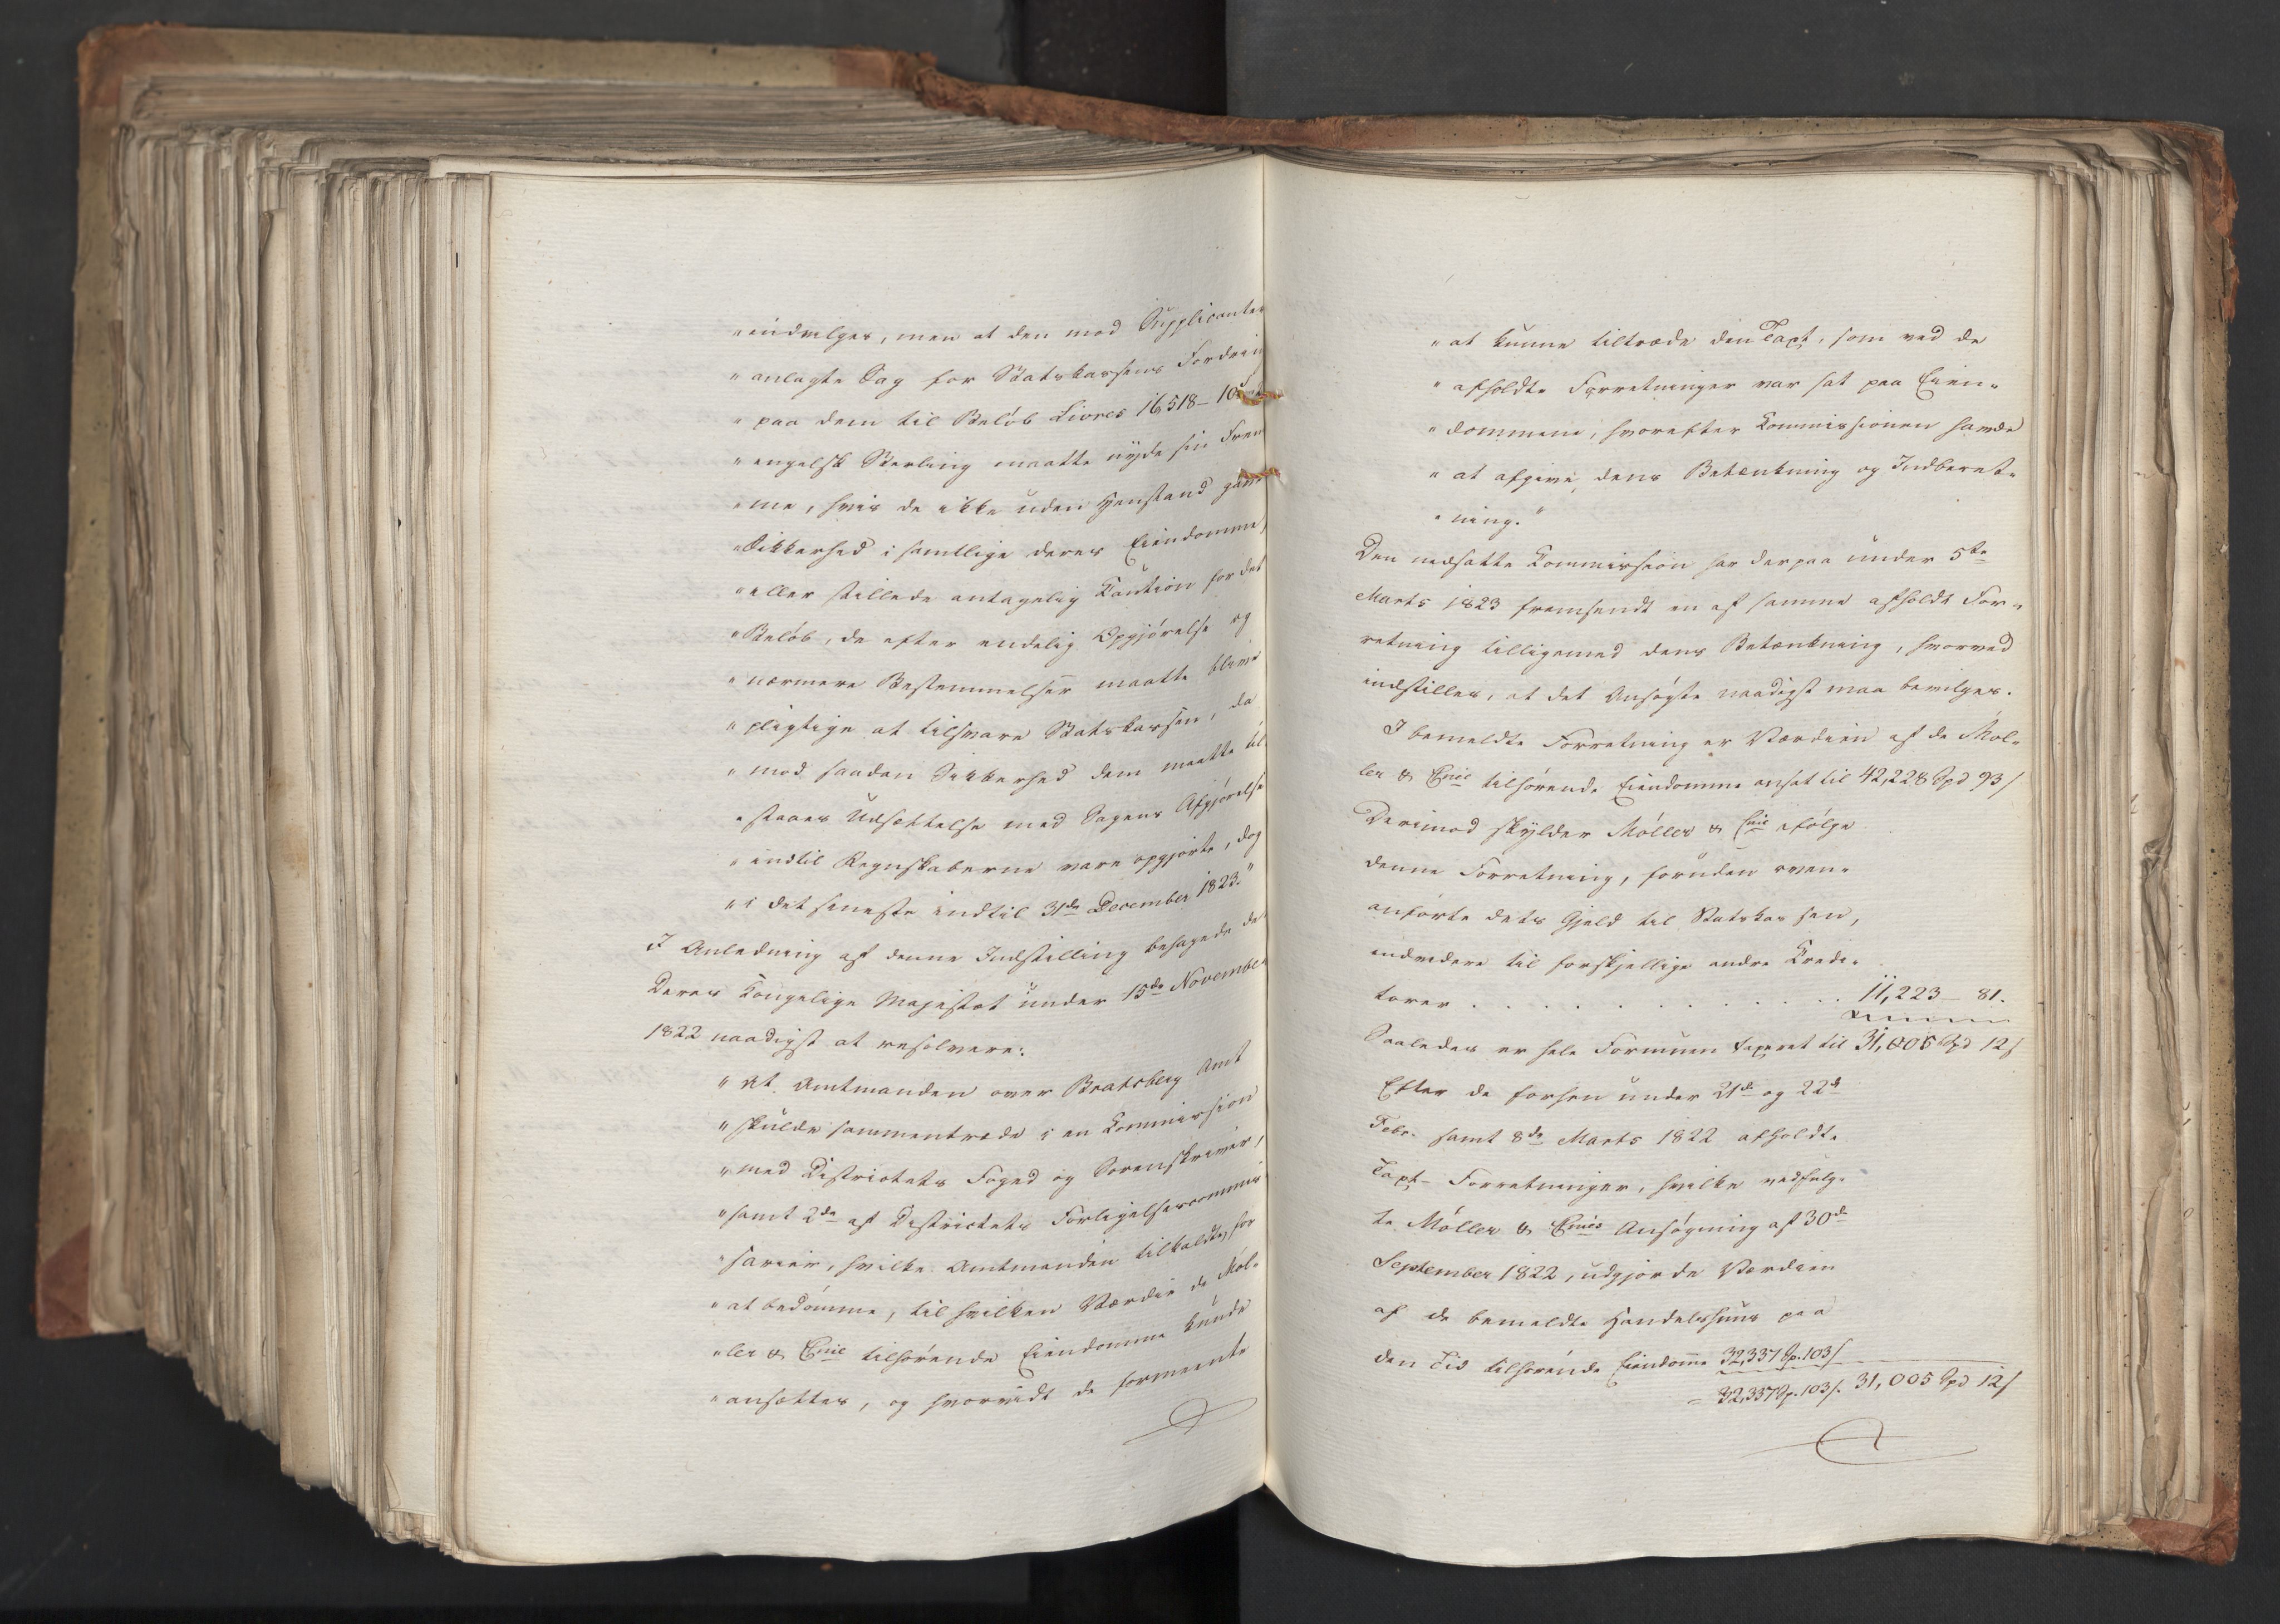 "indvilges, men at den mod Supplicanter
"anlagte Sag for Statskassens Fordring
"paa dem til Beløb Livres 16,518_10
"engelsk Sterling maatte nyde sin Frem
"me, hvis de ikke uden Henstand gav
"Sikkerhed i samtlige deres Eiendomme,
"eller stillede antagelig Kaution for det
"Beløb, de efter endelig Opgjørelse og
"nærmere Bestemmelser maatte blive
"pligtige at tilsvare Statskassen, da
"mod saadan Sikkerhed dem maatte til
"staaes Udsættelse med Sagens Afgjørelse
"indtil Regnskaberne vare opgjorte, dog
"i det seneste indtil 31de December 1823."
I Anledning af denne Indstilling behagede det
Deres Kongelige Majestæt under 15de November
1822 naadigst at resolvere:
"At Amtmanden over Bratsberg Amt
"skulde sammentræde i en Kommission
"med Districtets Foged og Sorenskriver,
"samt 2de af Districtets Forligelsescommis
"sarier, hvilke Amtmanden tilkaldte, for
"at bedømme, til hvilken Værdie de Møl-
"ler & Cnie tilhørende Eiendomme kunde
"ansættes, og hvorvidt de formeente
"at kunne tiltræde den Taxt, som ved de
"afholdte Forretninger var sat paa Eien-
"dommene, hvorefter Kommissionen havde
"at afgive dens Betænkning og Indberet-
"ning."
Den nedsatte Kommission har derpaa under 5te
Marts 1823 fremsendt en af samme afholdt For-
retning tilligemed dens Betænkning, hvorved
indstilles, at det Ansøgte naadigst maa bevilges.
I bemeldte Forretning er Værdien af de Møl-
ler & Cnie tilhørende Eiendomme ansat til 42,228 Spd 93 s
Derimod skylder Møller & Cnie ifølge
denne Forretning, foruden oven-
anførte dets Gjeld til Statskassen,
endvidere til forskjellige andre Kredi-
torer . . . . . . . . . . . . 11,223_ 81.
Saaledes er hele Formuen taxeret til 31,005 Spd 12 s
Efter de forhen under 21de og 22de
Febr. samt 8de Marts 1822 afholdte
Taxt-Forretninger, hvilke vedfulg-
te Møller & Cnies Ansøgning af 30de
September 1822, udgjorde Værdien
af de bemeldte Handelshuus paa
den Tid tilhørende Eiendomme 32,337 Sp. 103 s
= 32,337 Sp. 103 s. 31,005 Spd 12 s